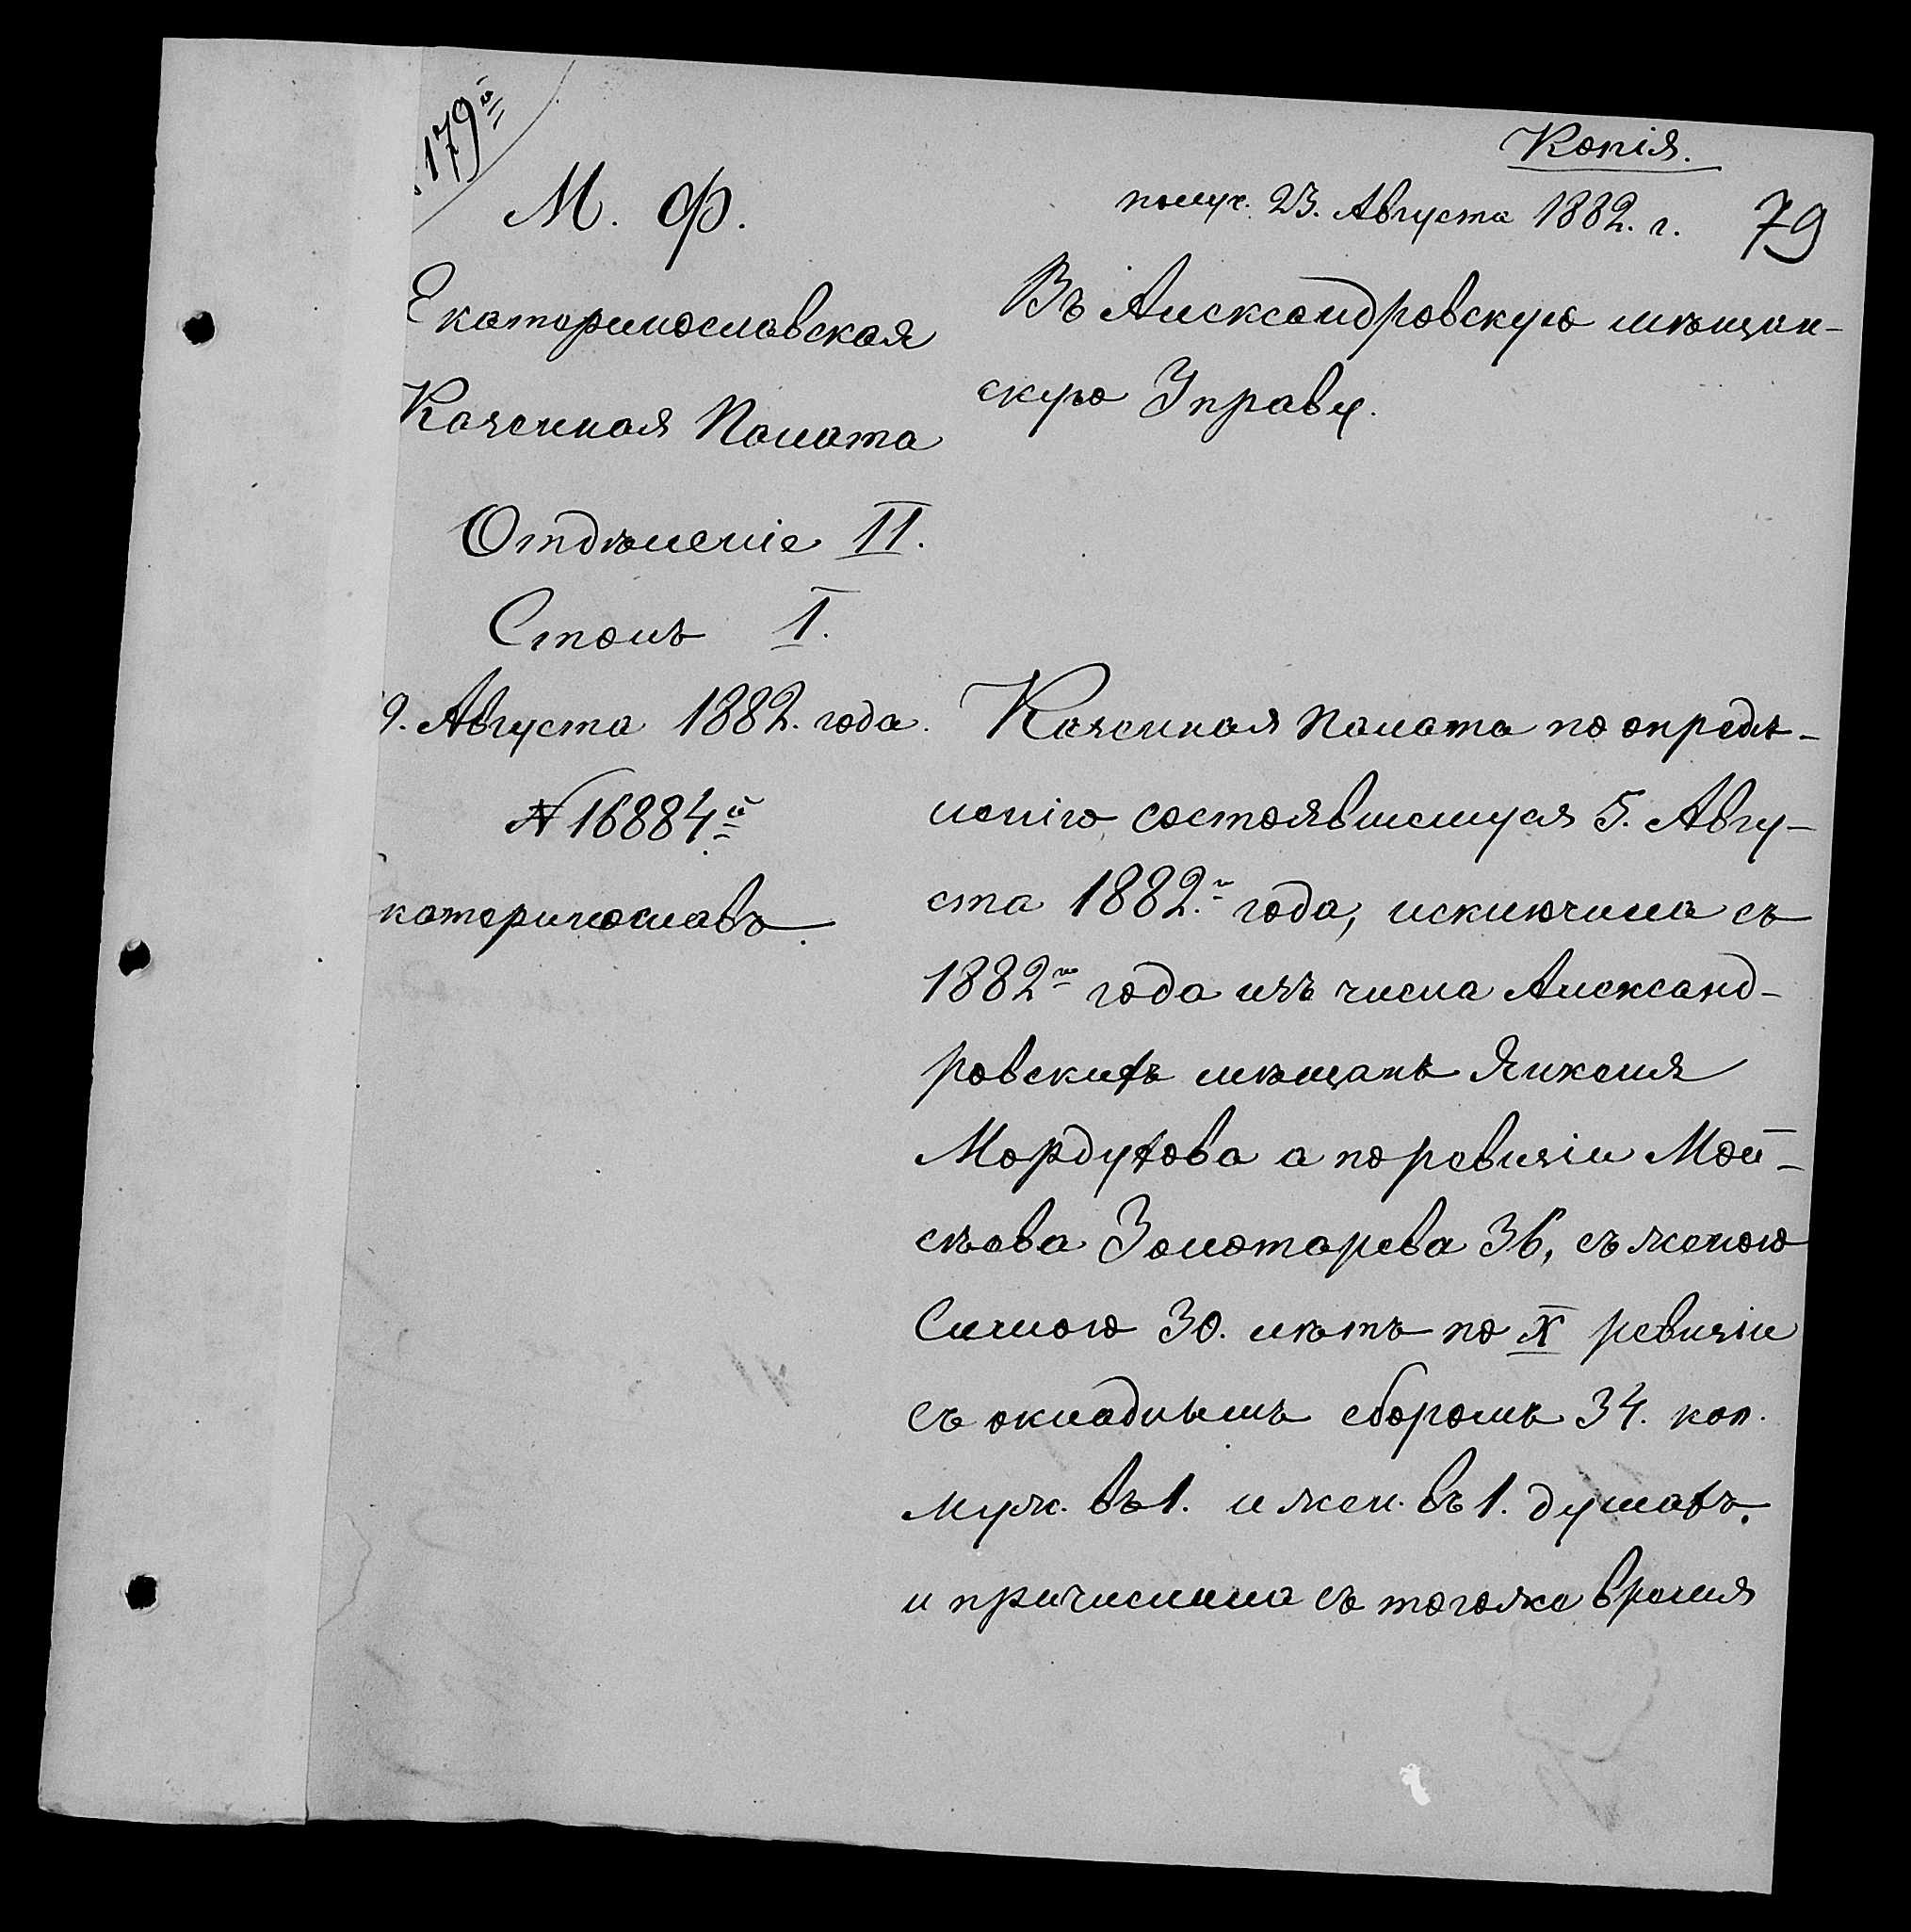 179й
Копія.
получ. 23. Августа 1882. г.
79
М. Ф.
Екатеринославская
Казенная Палата
Отдѣленіе II.
Столъ I.
9. Августа 1882. года.
№ 16884й
катеринославъ.
Въ Александровскую мѣщан-
скую Управу.
Казенная Палата по опредѣ-
ленію состоявшемуся 5. Авгу-
ста 1882.го года, исключила съ
1882го года изъ числа Александ-
ровскихъ мѣщанъ Янкеля
Мордухова а по ревизіи Мой-
сѣева Золотарева 36, съ женою
30. лѣтъ по X ревизіи
съ окладнымъ сборомъ 34. коп.
муж. въ 1. и жен. въ 1. душахъ.
и причислила съ тогоже время